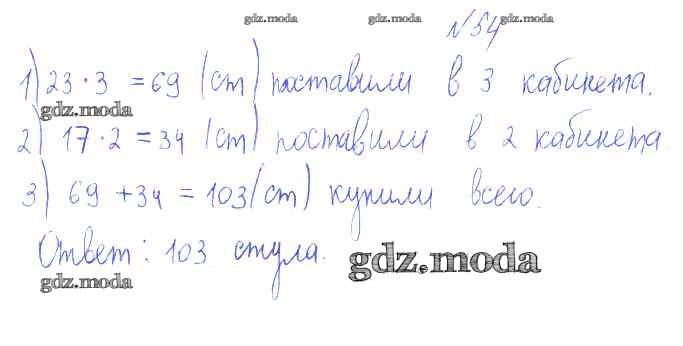 gdz.moda gdz.moda gdz.moda
№54
1) 23 · 3 = 69 (ст) поставили в 3 кабинета.
gdz.moda
2) 17 · 2 = 34 (ст) поставили в 2 кабинета.
3) 69 + 34 = 103 (ст) купили всего.
Ответ: 103 стула.
gdz.moda gdz.moda